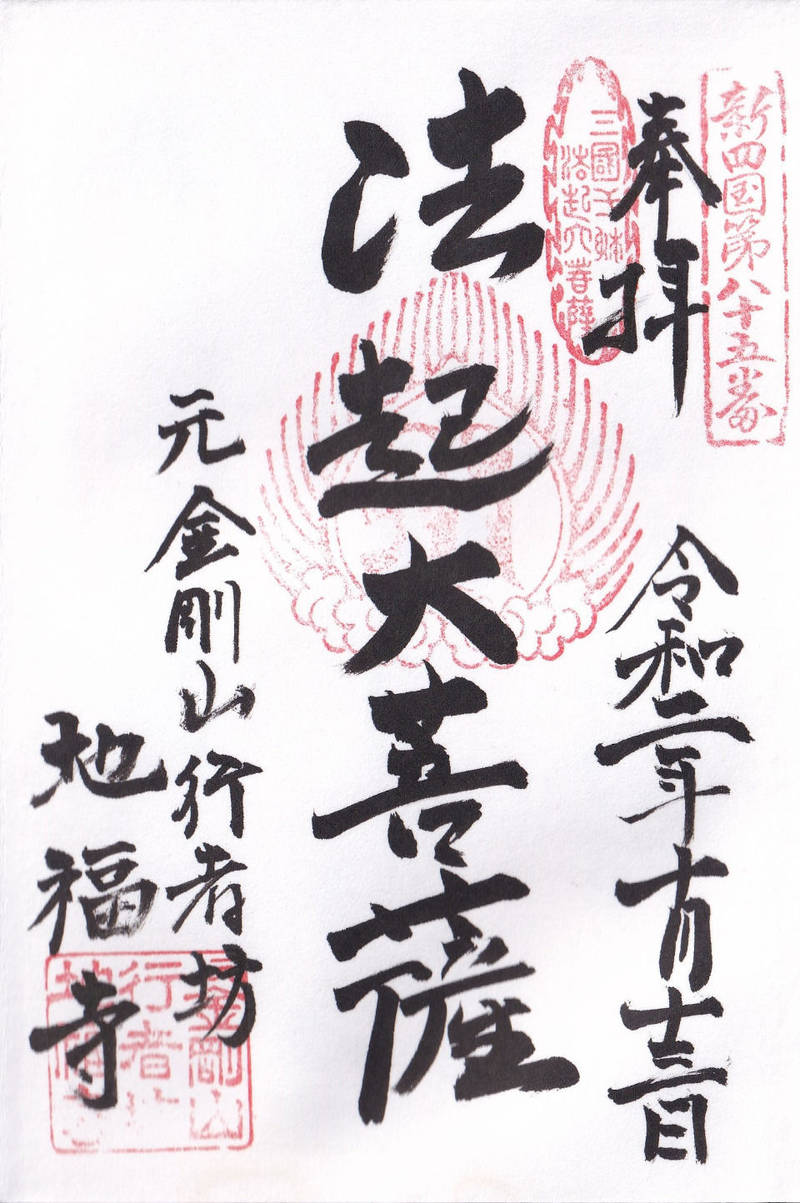 新四国第八十五番
奉拝
令和二年十月十三日
三國
法起大菩薩
法起大菩薩
元金剛山行者坊
地福寺
剛山
行者